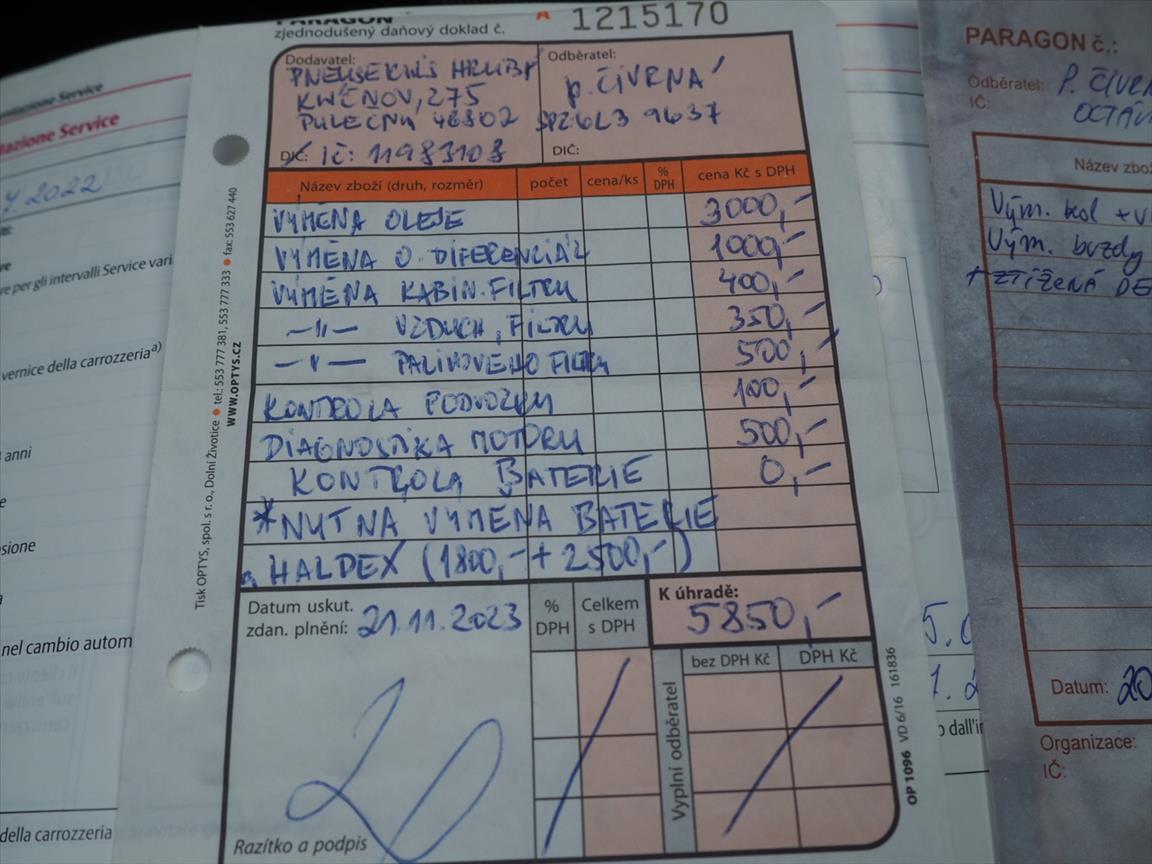 PARAGON
zjednodušený daňový doklad č.
A 1215170
Dodavatel:
PNEUSERVIS HRUBÝ
275
PULEČNÝ 46802
DIČ: IČ: 11983108
Odběratel:
p. ČIVRNÁ
SPZ 6L3 9637
DIČ:
Název zboží (druh, rozměr) počet cena/ks % DPH cena Kč s DPH
VÝMĚNA OLEJE 3000,-
VÝMĚNA O. DIFERENCIÁL 1000,-
VÝMĚNA KABIN. FILTRU 400,-
—〃— VZDUCH. FILTRU 350,-
—〃— PALIVOVÉHO FILTRU 500,-
KONTROLA PODVOZKU 100,-
DIAGNOSTIKA MOTORU 500,-
KONTROLA BATERIE 0,-
*NUTNÁ VÝMĚNA BATERIE
HALDEX (1800,- + 2500,-)
Datum uskut.
zdan. plnění: 21.11.2023
% DPH
Celkem s DPH
K úhradě:
5850,-
bez DPH Kč DPH Kč
Vyplní odběratel
Razítko a podpis
OP 1096 VD 6/16 161836
Tisk OPTYS, spol. s r. o., Dolní Životice • tel.: 553 777 381, 553 777 333 • fax: 553 627 440
WWW.OPTYS.CZ
Service
azione Service
2022
re per gli intervalli Service vari
vernice della carrozzeria a)
anni
sione
nel cambio autom
della carrozzeria
PARAGON č.:
Odběratel: P. ČIVRN
IČ: OCTÁV
Název zbož
Vým. kol + V
Vým. brzdy
+ ZTÍŽENÁ DE
Datum: 20
Organizace:
IČ:
dall'in